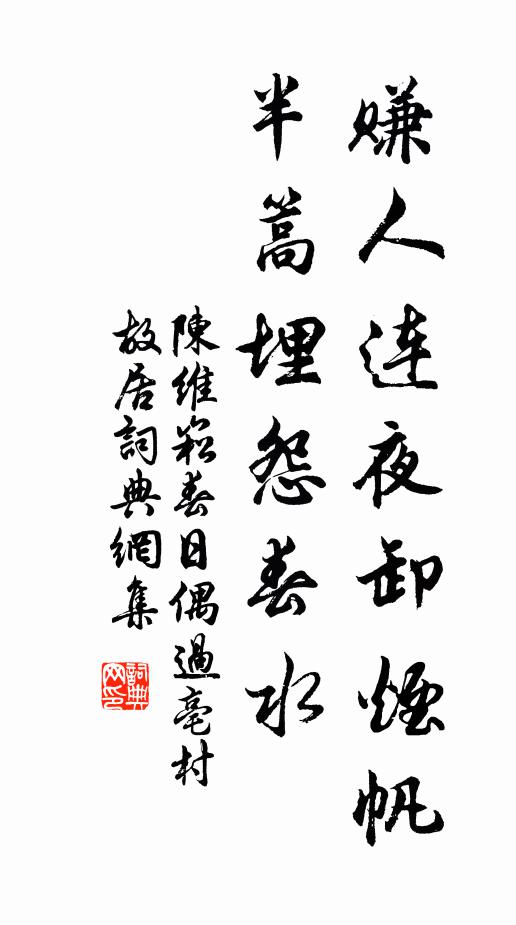 賺人連夜卸煙帆
半篙埋怨春水
陳維崧春日偶過亳村
故居詞典網集
詞典
网印